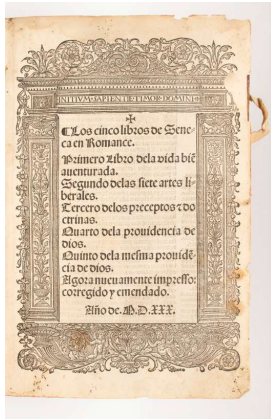 INITIVM·SAPIENTIE·TIMOR·DOMINI
✠
¶Los cinco libros de Sene-
ca en Romance.
Primero Libro dela vida biẽ
auenturada.
Segundo delas siete artes li-
berales.
Tercero delos preceptos ⁊ do
ctrinas.
Quarto dela prouidencia de
dios.
Quinto dela mesma prouidẽ
cia de dios.
Agora nueuamente impresso:
corregido y emendado.
Año de. M.D.XXX.